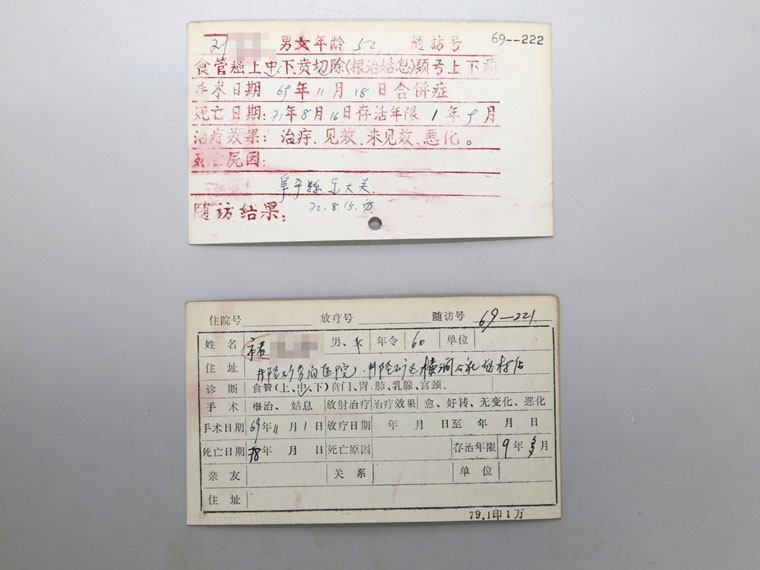 男女年龄 52 随访号 69--222
食管癌上中下贲切除(根治姑息)颈弓上下
手术日期 69年11月18日合併症
死亡日期:71年8月16日存活年限 1年9月
治疗效果:治疗、见效、未见效、恶化。
死亡原因:
阜平縣东大关
随访结果: 72.8.15.访
住院号 放疗号 随访号 69—221
姓名 男、女 年令 60 单位
住址 井陉矿务局医院,井陉矿区横涧公社
诊断 食管(上、中、下)贲门、胃、肺、乳腺、宫颈、
手术 根治、姑息 放射治疗 治疗效果 愈、好转、无变化、恶化
手术日期 69年11月1日 放疗日期 年 月 日至 年 月 日
死亡日期 78年 月 日 死亡原因 存治年限 9年 月
亲友 关系 单位
住址
79.1印1万